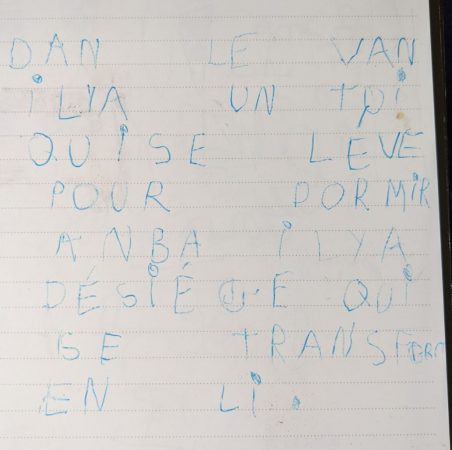 DAN LE VAN
iLYA UN tpi
QUiSE LEVE
POUR DORMiR
ANBA iLYA
DÉSiÉGE QUi
SE TRANSFORM
EN Li.